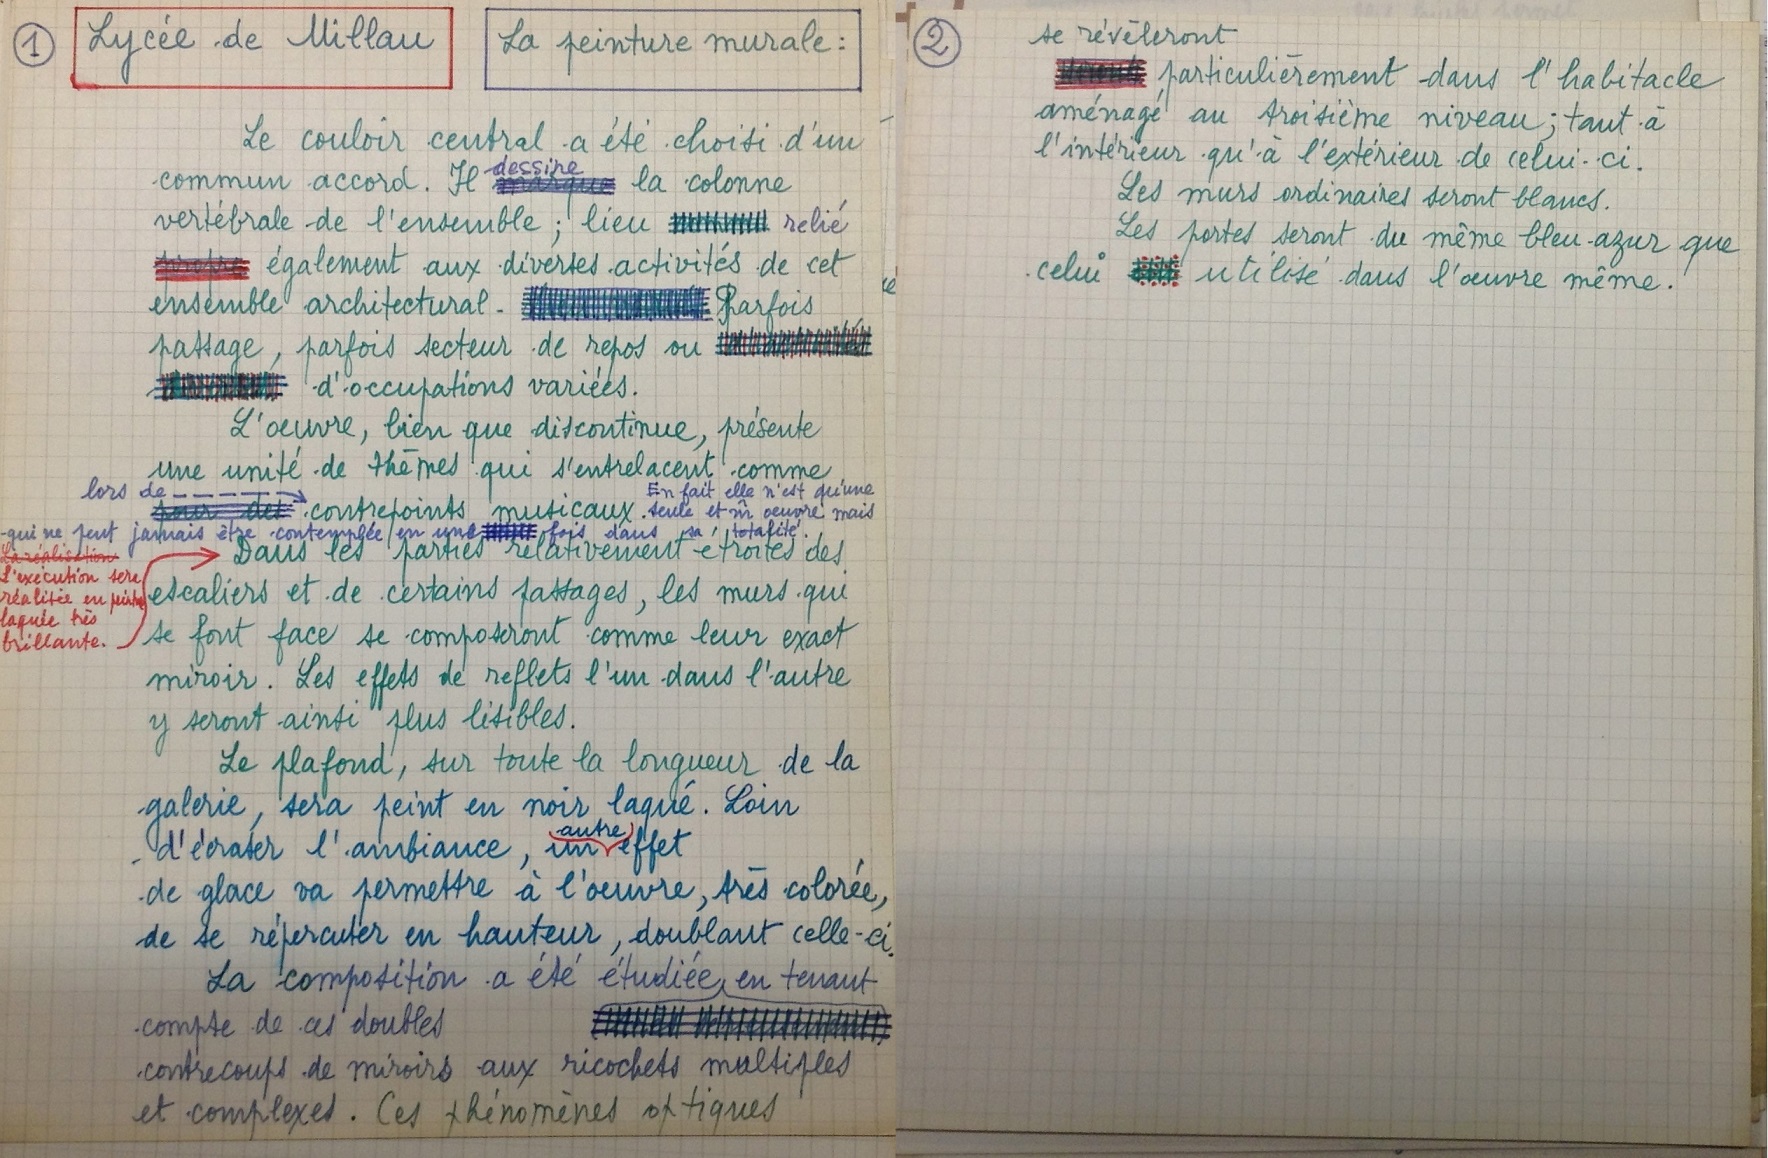 1 Lycée de Millau La peinture murale :
Le couloir central a été choisi d'un
dessine
commun accord. Il marque la colonne
vertébrale de l'ensemble ; lieu relié
propre également aux diverses activités de cet
ensemble architectural. Parfois
passage, parfois secteur de repos ou
d'occupations variées.
L'oeuvre, bien que discontinue, présente
une unité de thèmes qui s'entrelacent comme
lors de En fait elle n'est qu'une
pour des contrepoints musicaux. seule et m̄ oeuvre mais
qui ne peut jamais être contemplée en une fois dans sa totalité.
La réalisation
L'exécution sera
réalisée en peinture
laquée très
brillante.
Dans les parties relativement étroites des
escaliers et de certains passages, les murs qui
se font face se composeront comme leur exact
miroir. Les effets de reflets l'un dans l'autre
y seront ainsi plus lisibles.
Le plafond, sur toute la longueur de la
galerie, sera peint en noir laqué. Loin
autre
d'écraser l'ambiance, un effet
de glace va permettre à l'oeuvre, très colorée,
de se répercuter en hauteur, doublant celle-ci.
La composition a été étudiée, en tenant
compte de ces doubles
contrecoups de miroirs aux ricochets multiples
et complexes. Ces phénomènes optiques
2 se révèleront
particulièrement dans l'habitacle
aménagé au troisième niveau ; tant à
l'intérieur qu'à l'extérieur de celui-ci.
Les murs ordinaires seront blancs.
Les portes seront du même bleu-azur que
celui utilisé dans l'oeuvre même.